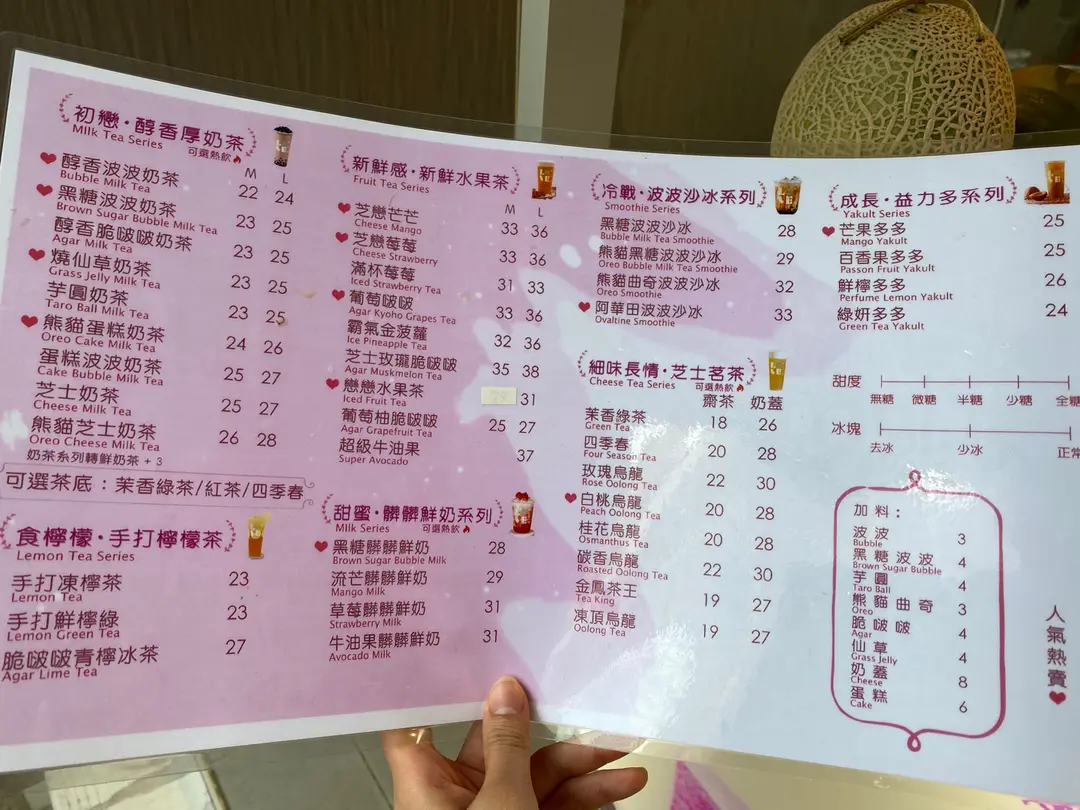 初戀·醇香厚奶茶
Milk Tea Series 可選熱飲
M L
醇香波波奶茶 22 24
Bubble Milk Tea
黑糖波波奶茶 23 25
Brown Sugar Bubble Milk Tea
醇香脆啵啵奶茶 23 25
Agar Milk Tea
燒仙草奶茶 23 25
Grass Jelly Milk Tea
芋圓奶茶 23 25
Taro Ball Milk Tea
熊貓蛋糕奶茶 24 26
Oreo Cake Milk Tea
蛋糕波波奶茶 25 27
Cake Bubble Milk Tea
芝士奶茶 25 27
Cheese Milk Tea
熊貓芝士奶茶 26 28
Oreo Cheese Milk Tea
奶茶糸列轉鮮奶茶 + 3
可選茶底：茉香綠茶/紅茶/四季春
食檸檬·手打檸檬茶
Lemon Tea Series
手打凍檸茶 23
Lemon Tea
手打鮮檸綠 23
Lemon Green Tea
脆啵啵青檸冰茶 27
Agar Lime Tea
新鮮感·新鮮水果茶
Fruit Tea Series
M L
芝戀芒芒 33 36
Cheese Mango
芝戀莓莓 33 36
Cheese Strawberry
滿杯莓莓 31 33
Iced Strawberry Tea
葡萄啵啵 33 36
Agar Kyoho Grapes Tea
霸氣金菠蘿 32 36
Ice Pineapple Tea
芝士玫瓏脆啵啵 35 38
Agar Muskmelon Tea
戀戀水果茶 31
Iced Fruit Tea
葡萄柚脆啵啵 25 27
Agar Grapefruit Tea
超級牛油果 37
Super Avocado
甜蜜·髒髒鮮奶系列
Milk Series 可選熱飲
黑糖髒髒鮮奶 28
Brown Sugar Bubble Milk
流芒髒髒鮮奶 29
Mango Milk
草莓髒髒鮮奶 31
Strawberry Milk
牛油果髒髒鮮奶 31
Avocado Milk
冷戰·波波沙冰系列
Smoothie Series
黑糖波波沙冰 28
Bubble Milk Tea Smoothie
熊貓黑糖波波沙冰 29
Oreo Bubble Milk Tea Smoothie
熊貓曲奇波波沙冰 32
Oreo Smoothie
阿華田波波沙冰 33
Ovaltine Smoothie
細味長情·芝士茗茶
Cheese Tea Series 可選熱飲
齋茶 奶蓋
茉香綠茶 18 26
Green Tea
四季春 20 28
Four Season Tea
玫瑰烏龍 22 30
Rose Oolong Tea
白桃烏龍 20 28
Peach Oolong Tea
桂花烏龍 20 28
Osmanthus Tea
碳香烏龍 22 30
Roasted Oolong Tea
金鳳茶王 19 27
Tea King
凍頂烏龍 19 27
Oolong Tea
成長·益力多系列
Yakult Series
芒果多多 25
Mango Yakult
百香果多多 25
Passon Fruit Yakult
鮮檸多多 26
Perfume Lemon Yakult
綠妍多多 24
Green Tea Yakult
甜度
無糖 微糖 半糖 少糖 全糖
冰塊
去冰 少冰 正常
加料：
波波 3
Bubble
黑糖波波 4
Brown Sugar Bubble
芋圓 4
Taro Ball
熊貓曲奇 3
Oreo
脆啵啵 4
Agar
仙草 4
Grass Jelly
奶蓋 8
Cheese
蛋糕 6
Cake
人氣熱賣